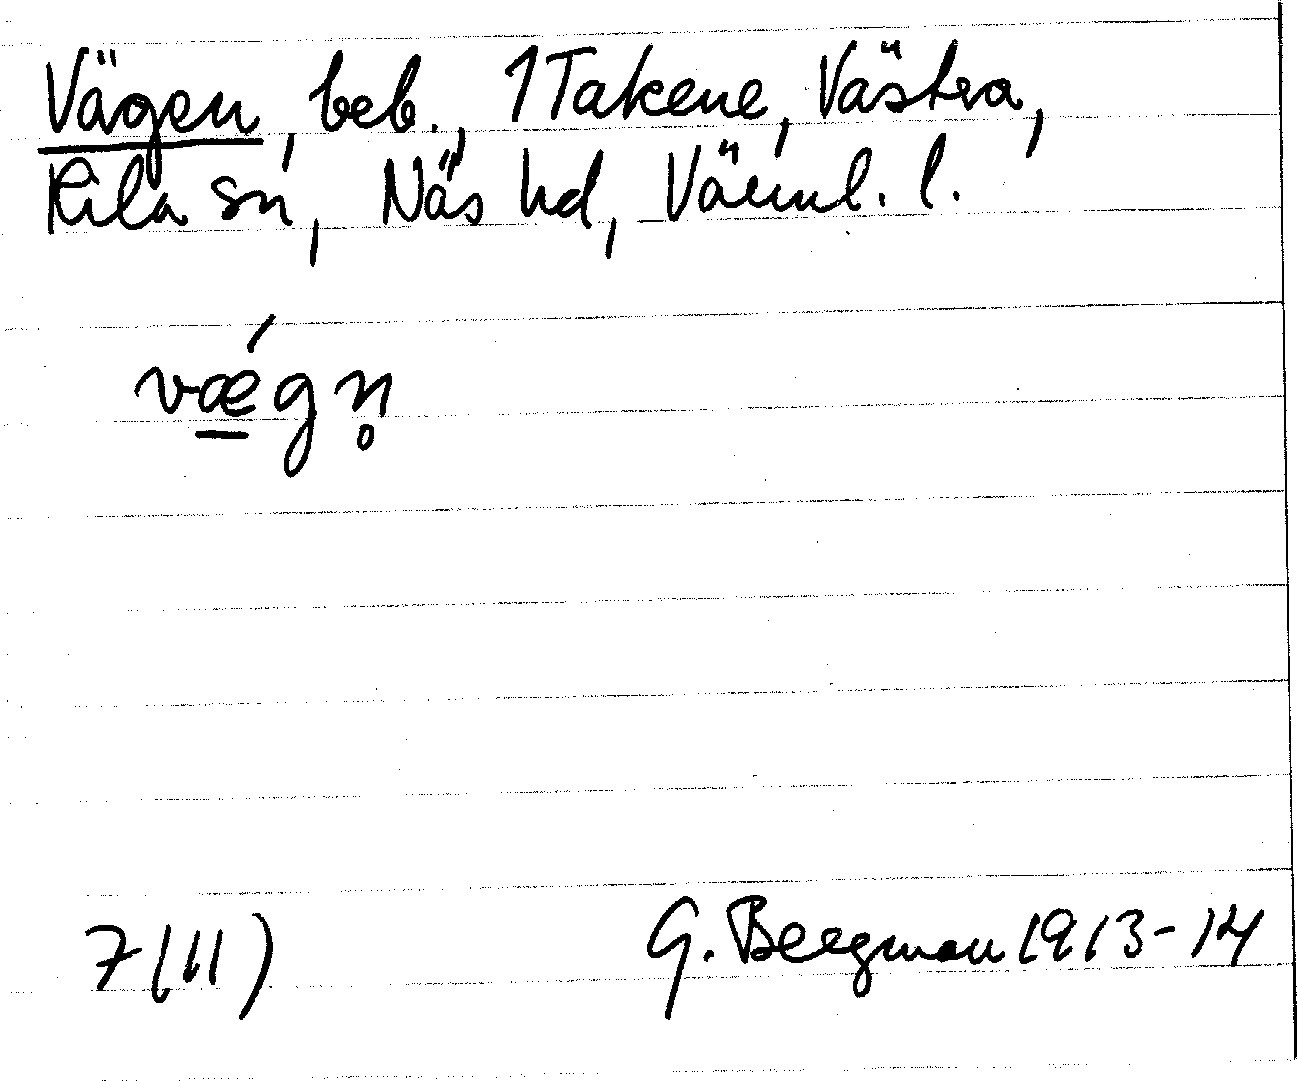 Vägen, beb., 1 Takene, Västra,
Kila sn, Näs hd, Värml. l.
vǽ̱gn̥
7(11)
G. Bergman 1913-14